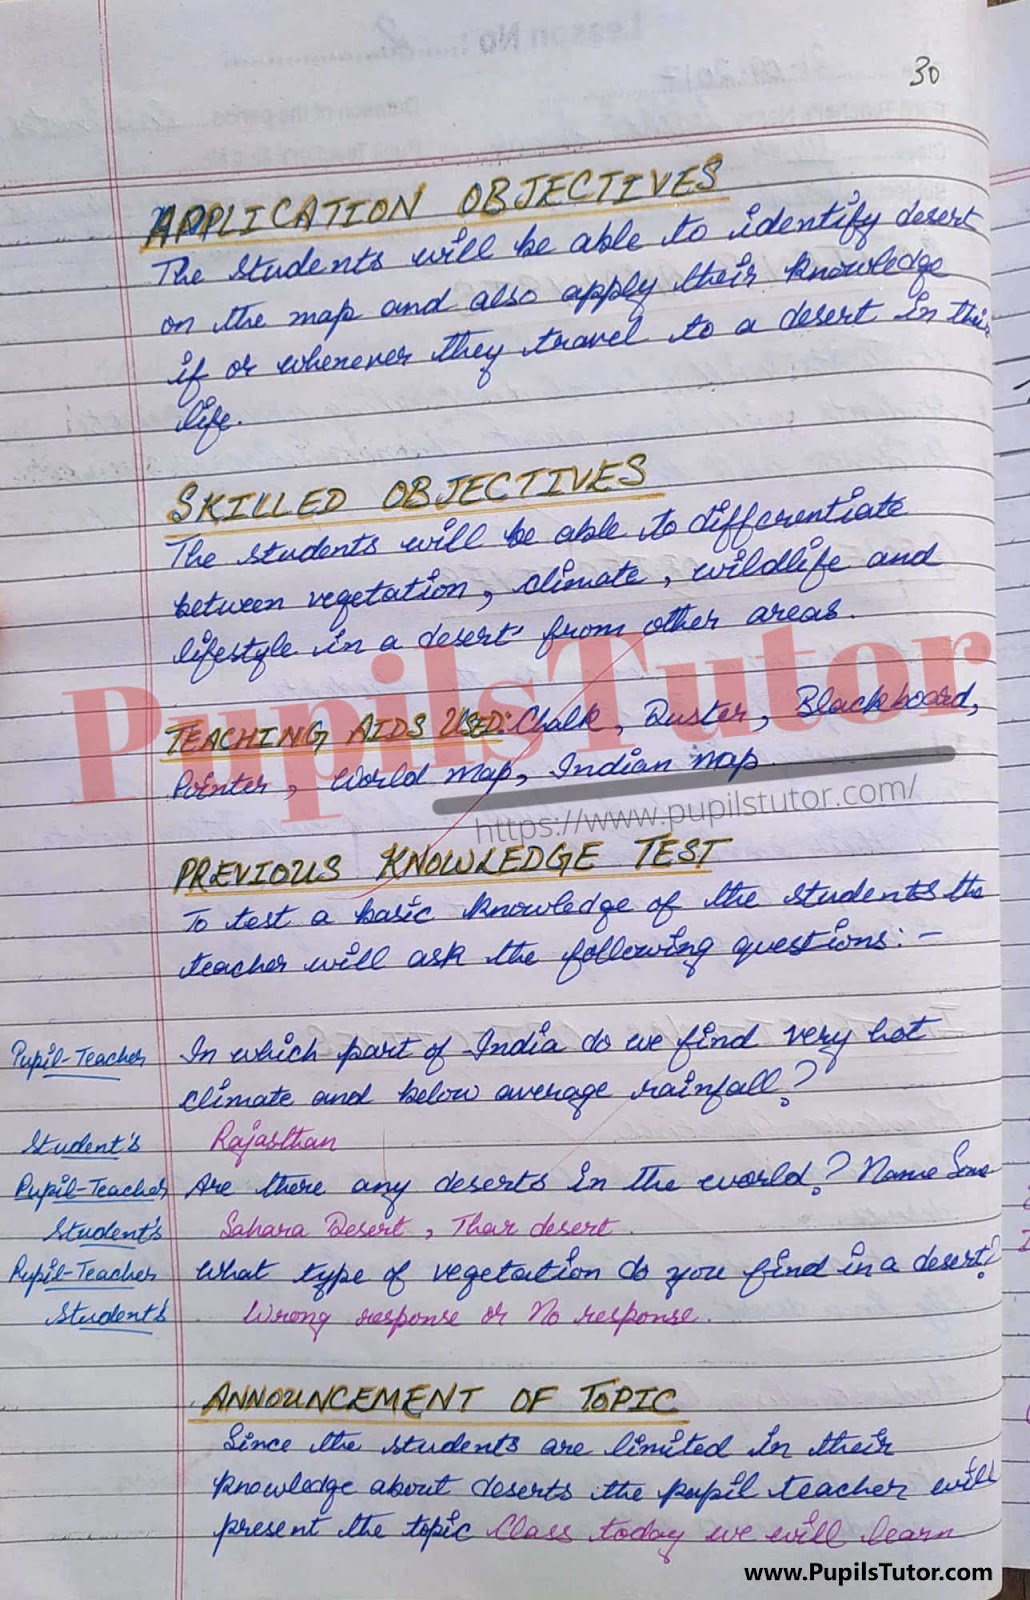 30
APPLICATION OBJECTIVES
The students will be able to identify desert
on the map and also apply their knowledge
if or whenever they travel to a desert in their
life.
SKILLED OBJECTIVES
The students will be able to differentiate
between vegetation, climate, wildlife and
lifestyle in a desert from other areas.
PupilsTutor
TEACHING AIDS USED: Chalk, Duster, Blackboard,
Pointer, World Map, Indian Map
https://www.pupilstutor.com/
PREVIOUS KNOWLEDGE TEST
To test a basic knowledge of the students the
teacher will ask the following questions: -
Pupil-Teacher In which part of India do we find very hot
climate and below average rainfall?
Student's Rajasthan
Pupil-Teacher Are there any deserts in the world? Name Some
Student's Sahara Desert, Thar desert.
Pupil-Teacher What type of vegetation do you find in a desert?
Student's Wrong response or No response.
ANNOUNCEMENT OF TOPIC
Since the students are limited in their
knowledge about deserts the pupil teacher will
present the topic Class today we will learn
www.PupilsTutor.com